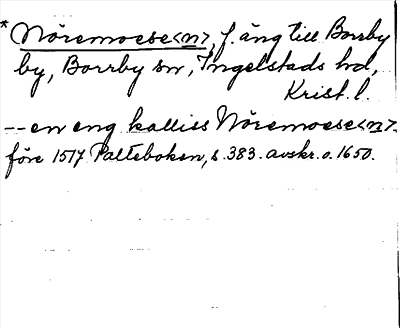 * Nöremoese<n>, f. äng till Borrby
by, Borrby sn, Ingelstads hd,
Krist. l.
-- en eng kalliss Nöremoese<n>.
före 1517 Palteboken, s. 383. avskr. o. 1650.